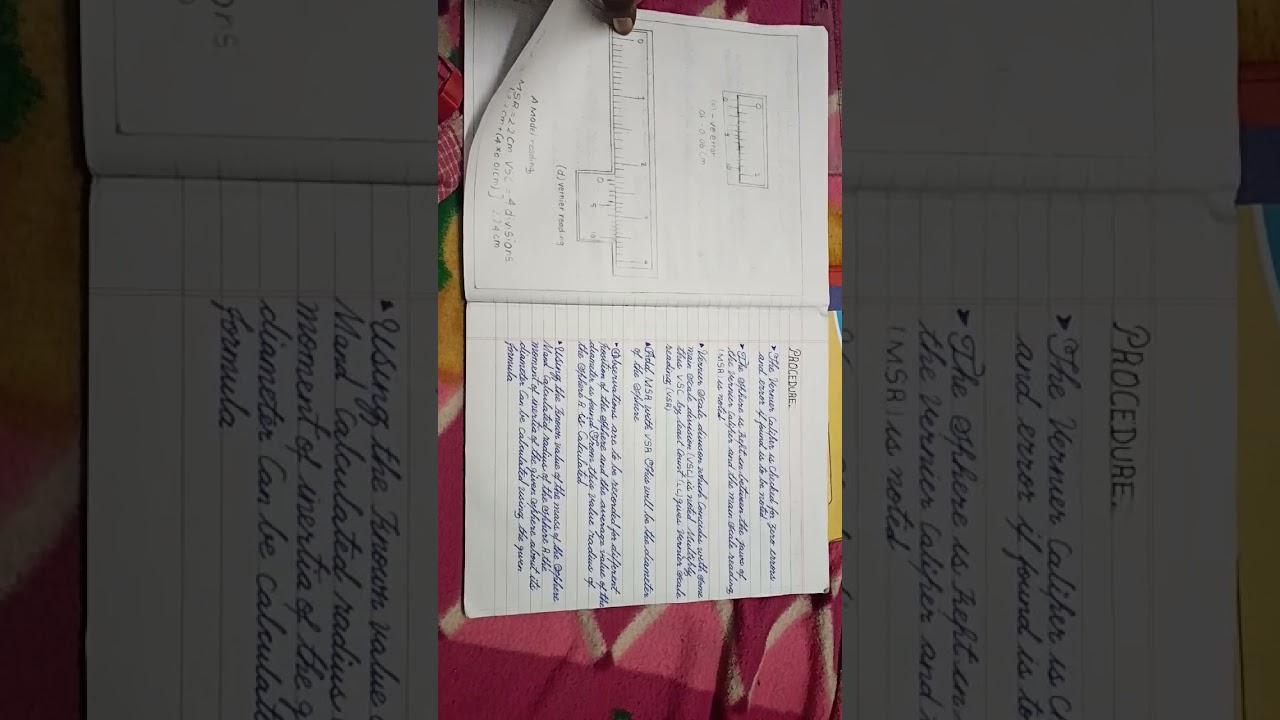 (c) -ve error
A Model reading
(d) vernier reading
MSR = 2.2 cm VSC = 4 divisions
cm + (4 x 0.01cm)] 2.24cm
PROCEDURE.
The Vernier Caliper is checked for zero errors
and error if found is to be noted
The Sphere is kept in between the jaws of
the Vernier Caliper and the main scale reading
(MSR) is noted
Vernier Scale division which Coincides with Some
main Scale division (VSC) is noted Multiply
this VSC by least Count (LC) gives Vernier Scale
reading (VSR)
Add MSR with VSR This will be the diameter
of the Sphere
Observations are to be recorded for different
positions of the Sphere and the average value of the
diameter is found From this value radius of
the Sphere R is Calculated
Using the Known value of the mass of the Sphere
M and Calculated radius of the Sphere R the
moment of inertia of the given Sphere about its
diameter Can be Calculated using the given
formula